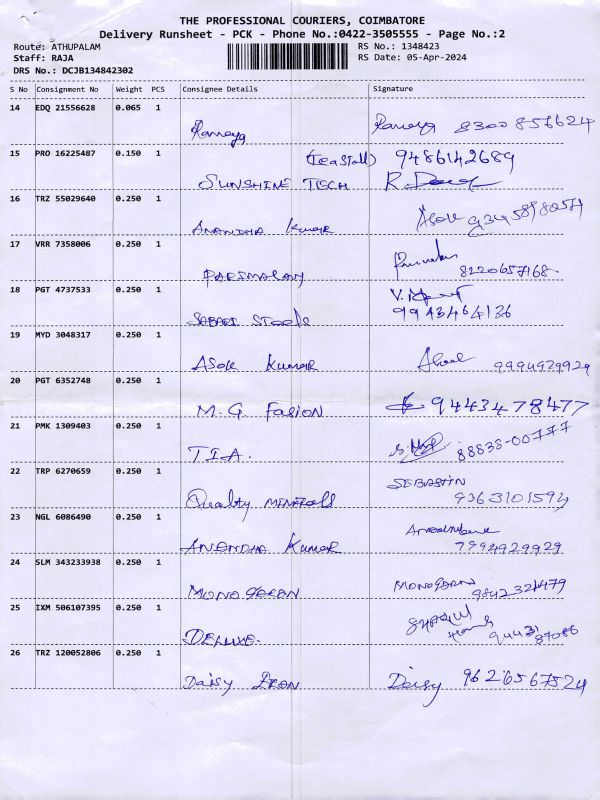 THE PROFESSIONAL COURIERS, COIMBATORE
Delivery Runsheet - PCK - Phone No.:0422-3505555 - Page No.:2
Route: ATHUPALAM RS No.: 1348423
Staff: RAJA RS Date: 05-Apr-2024
DRS No.: DCJB134842302
S No Consignment No Weight PCS Consignee Details Signature
14 EDQ 21556628 0.065 1
Ramaya Ramaya 8300856624
15 PRO 16225487 0.150 1 (Tea Stall) 9486142689
SUNSHINE TECH R.
16 TRZ 55029640 0.250 1
ANANDHA Kumar Asok
17 VRR 7358006 0.250 1
PARIMALAM 8220657168
18 PGT 4737533 0.250 1 V.
SABARI Steels 9943464136
19 MYD 3048317 0.250 1
ASOK KUMAR 9994929929
20 PGT 6352748 0.250 1
M.G. Fasion 9443478477
21 PMK 1309403 0.250 1
T.I.A. 88838-00777
22 TRP 6270659 0.250 1 SEBASTIN
Quality MINERALS 9363101594
23 NGL 6086490 0.250 1
ANANDHA Kumar 7994929929
24 SLM 343233938 0.250 1
MONOGARAN MONOGARAN 9842321479
25 IXM 506107395 0.250 1
DELUXE. 94431 87086
26 TRZ 120052806 0.250 1
Daisy Daisy 9626567524